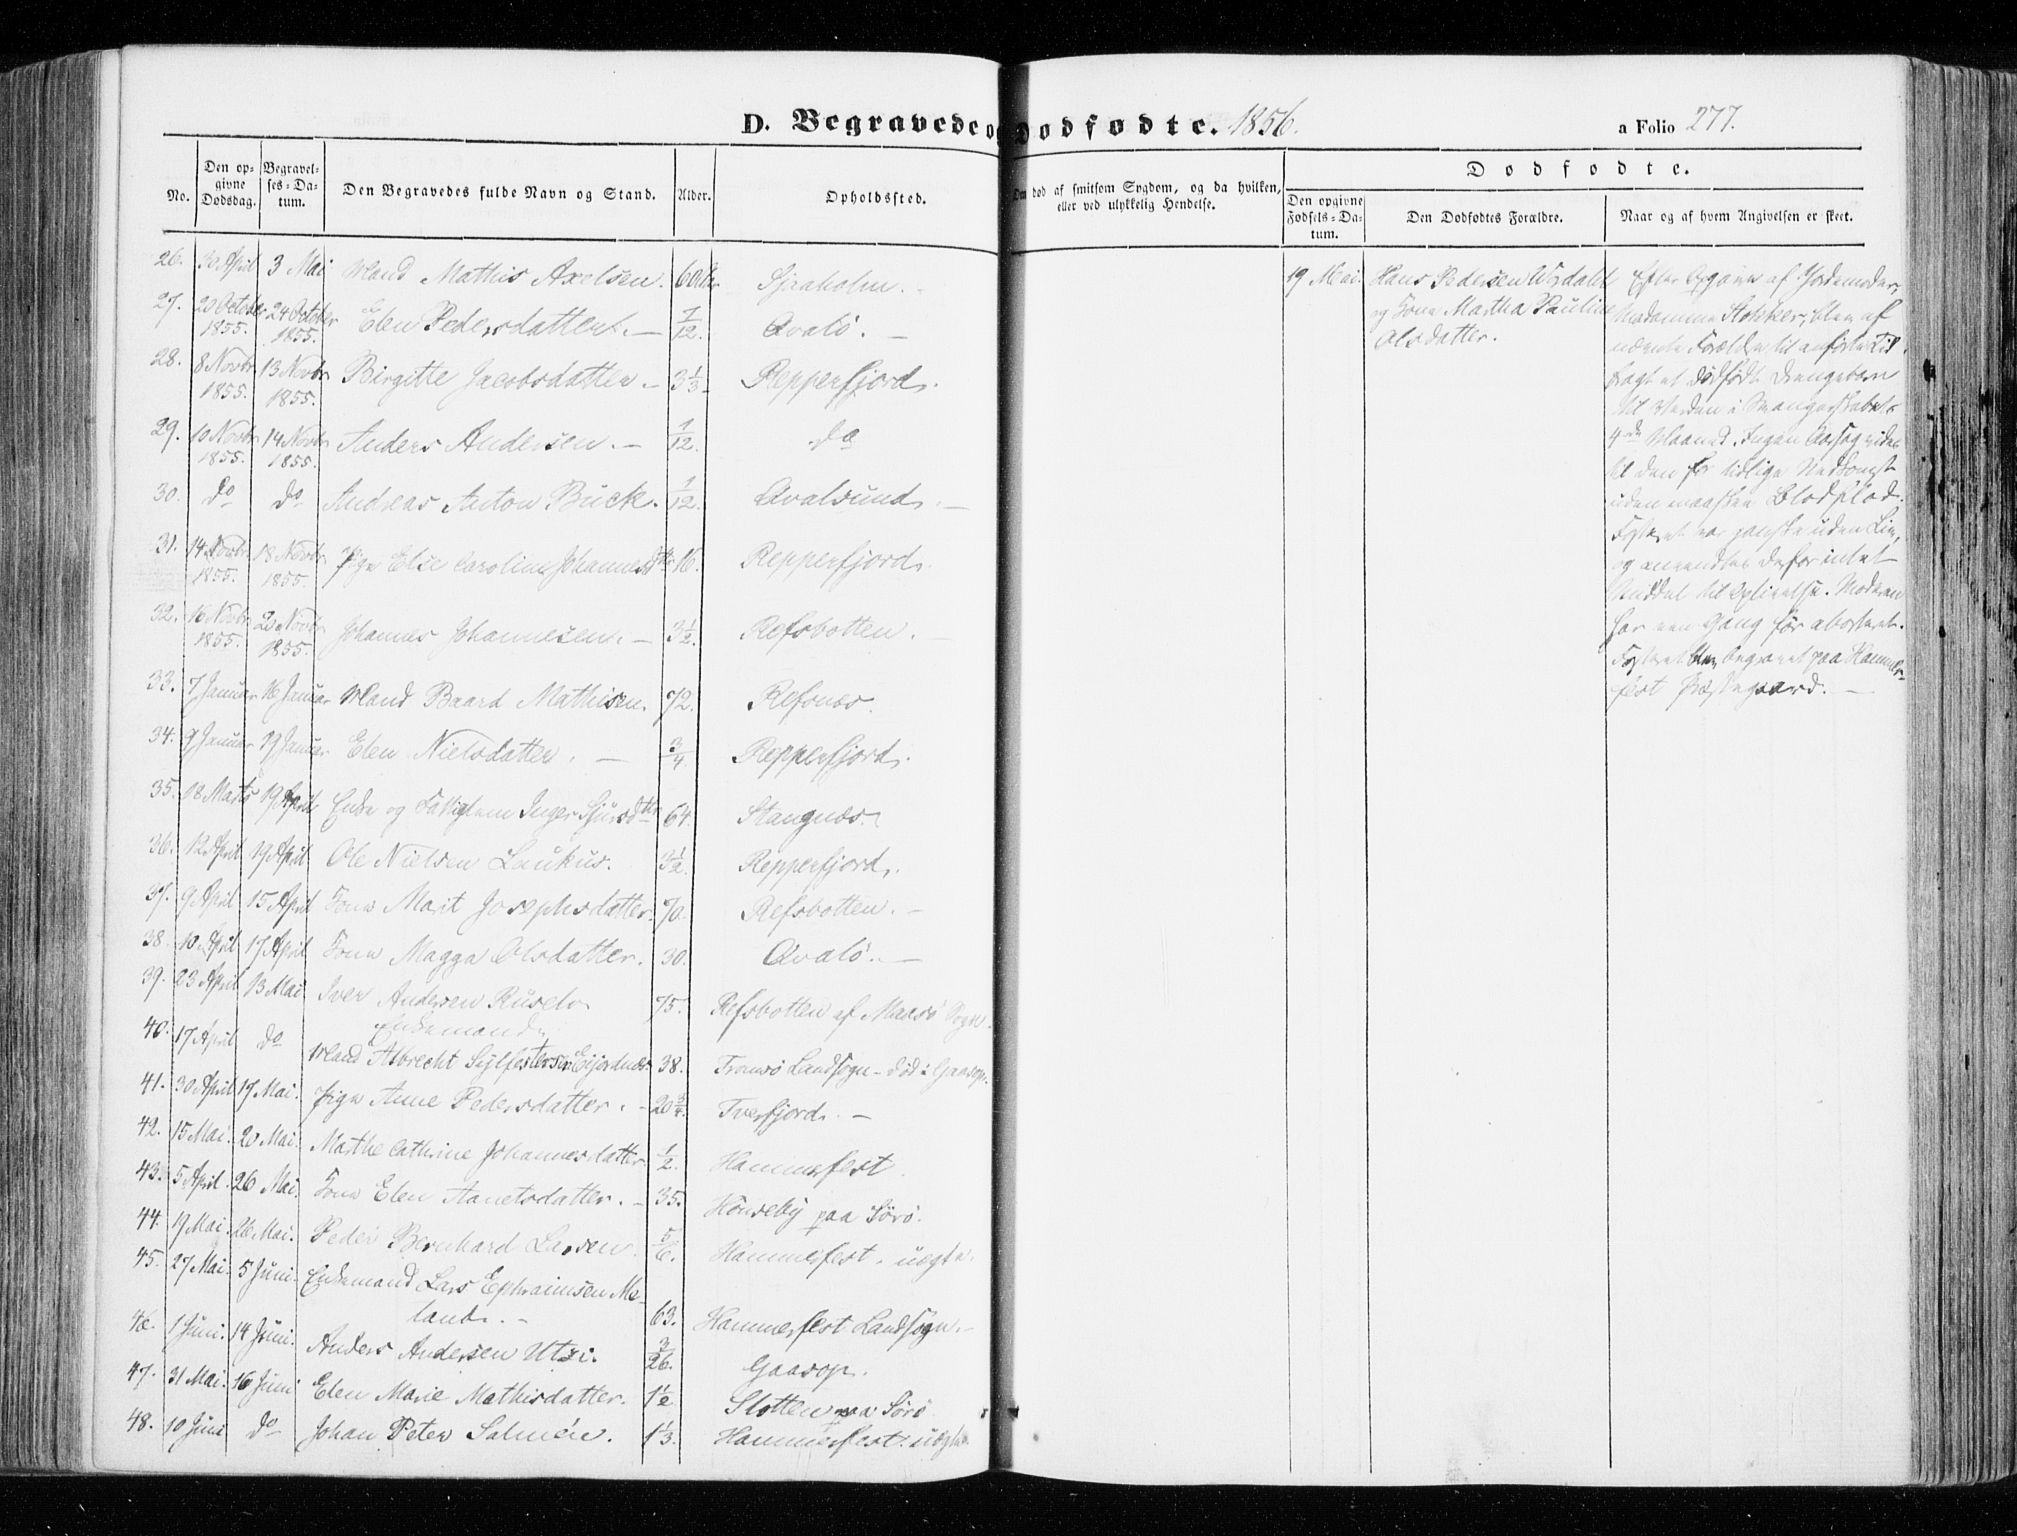 D. Begravede og Dødfødte. 1856.
a Folio 277.
No.
Den opgivne Dødsdag.
Begravelses-Datum.
Den Begravedes fulde Navn og Stand.
Alder.
Opholdssted.
Om død af smitsom Sygdom, og da hvilken, eller ved ulykkelig Hendelse.
Dødfødte.
Den opgivne Fødsels-Datum.
Den Dødfødtes Forældre.
Naar og af hvem Angivelsen er skeet.
26. 30 April 3 Mai Mand Mathis Axelsen. 60 Sjaaholm.
27. 20 October 1855. 24 October 1855. Elen Pedersdatter. — 1/12. Qvalö.
28. 8 Novbr 1855. 13 Novbr 1855. Birgitte Jacobsdatter — 3 1/3 Repperfjord.
29. 10 Novbr 1855. 14 Novbr 1855. Anders Andersen. — 1/12. do
30. do do Andreas Anton Buck. 1/12. Qvalsund.
31. 14 Novbr 1855. 18 Novbr 1855. Pige Else Caroline Johannesdtr 16. Repperfjord.
32. 16 Novbr 1855. 20 Novbr 1855. Johannes Johannesen. — 3 1/2. Refsbotten.
33. 7 Januar 16 Januar Mand Baard Mathisen. 72. Refsnes.
34. 9 Januar 19 Januar Elen Nielsdatter. — 3/4 Repperfjord.
35. 18 Marts 19 April Enke og Fattiglem Inger Sjursdtr 64. Stangnæs.
36. 12 April 19 April Ole Nielsen Laukus. 3 1/2. Repperfjord.
37. 9 April 15 April Kone Marit Josephsdatter. 70. Refsbotten. —
38. 10 April 17 April Kone Magga Olsdatter. 30. Qvalö. —
39. 23 April 13 Mai Iver Andersen
Enkemand 75. Refsbotten af Maasö Sogn.
40. 17 April do Mand Albrecht Sylfestersen 38. Tromsö Landsogn - död i Gaasop.
41. 30 April 17 Mai. Pige Anne Pedersdatter. — 20 3/4. Tverfjord. —
42. 15 Mai. 20 Mai. Marthe Cathrine Johannesdatter. 1/2. Hammerfest
43. 5 April. 26 Mai. Kone Elen Aanetsdatter. — 35. Hönseby paa Sörö.
44. 19 Mai. 26 Mai. Peder Bernhard Larsen. 5/6. Hammerfest. uægte.
45. 27 Mai. 5 Juni. Enkemand Lars Ephraimsen Me-
land. — 63. Hammerfest Landsogn. —
46. 1 Juni. 14 Juni. Anders Andersen Utsi. 3/26. Gaasop.
47. 31 Mai. 16 Juni Elen Marie Mathisdatter. 1 1/2 Slotten paa Sörö
48. 10 Juni do Johan Peter Salmén. 1 1/3. Hammerfest. uægte.
19 Mai.
Hans Pedersen
og Kone Martha Pauline
Olsdatter.
Efter Opgave af Jordemoder,
Madamme Stokker, blev af
nævnte Forældre til anförte Tid
bragt et dödfödt Drengebarn
til Verden i Svangerskabets
4de Maaned. Ingen Aarsag vides
til den for tidlige Nedkomst
uden maaskee Blodflod.
Fosteret var ganske uden Liv,
og anvendtes derfor intet
Middel til Oplivelse. Moderen
har een Gang för aborteret.
Fosteret blev begravet paa Hammer-
fest Præstegaard. —